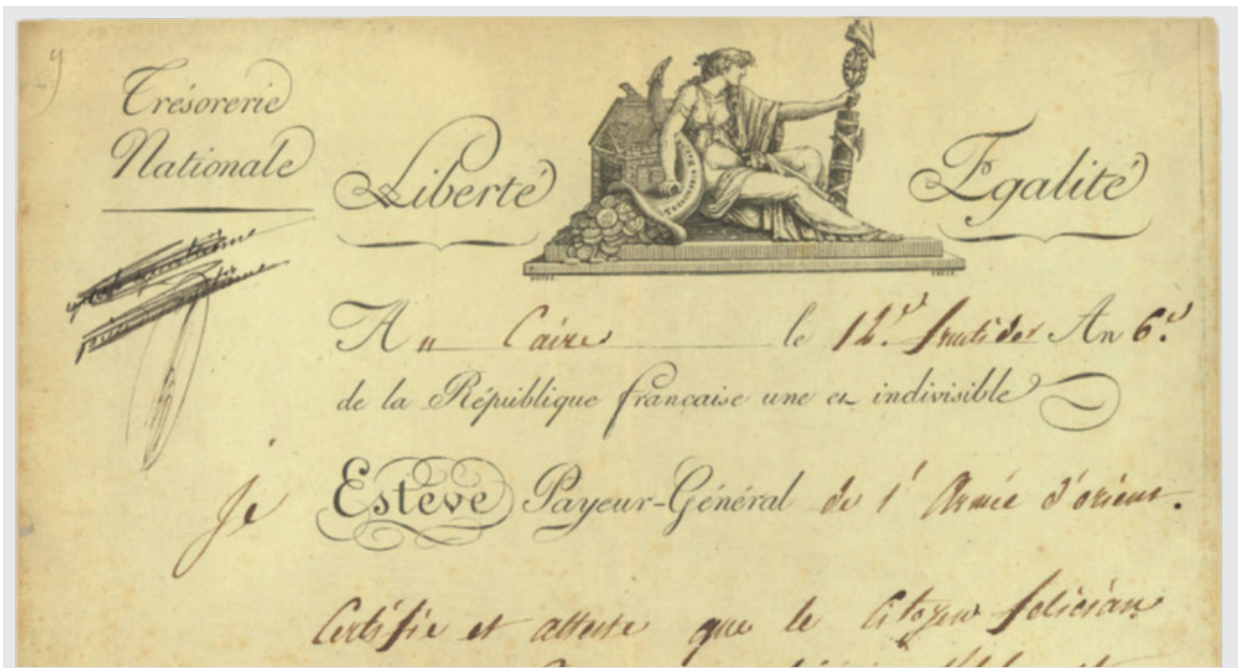 Trésorerie
Nationale
Liberté
Egalité
TRÉSORERIE NATLE
Au Caire le 12.e fructidor An 6.e
de la République française une et indivisible
Je Estève Payeur-Général de l'Armée d'orient.
Certifie et atteste que le Citoyen felician